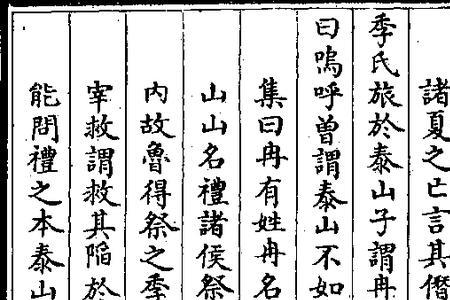 諸夏之亡言其僭
季氏旅於泰山子謂冉
曰嗚呼曾謂泰山不如
集曰冉有姓冉名
山山名禮諸侯祭
内故魯得祭之季
宰救謂救其陷於
能問禮之本泰山